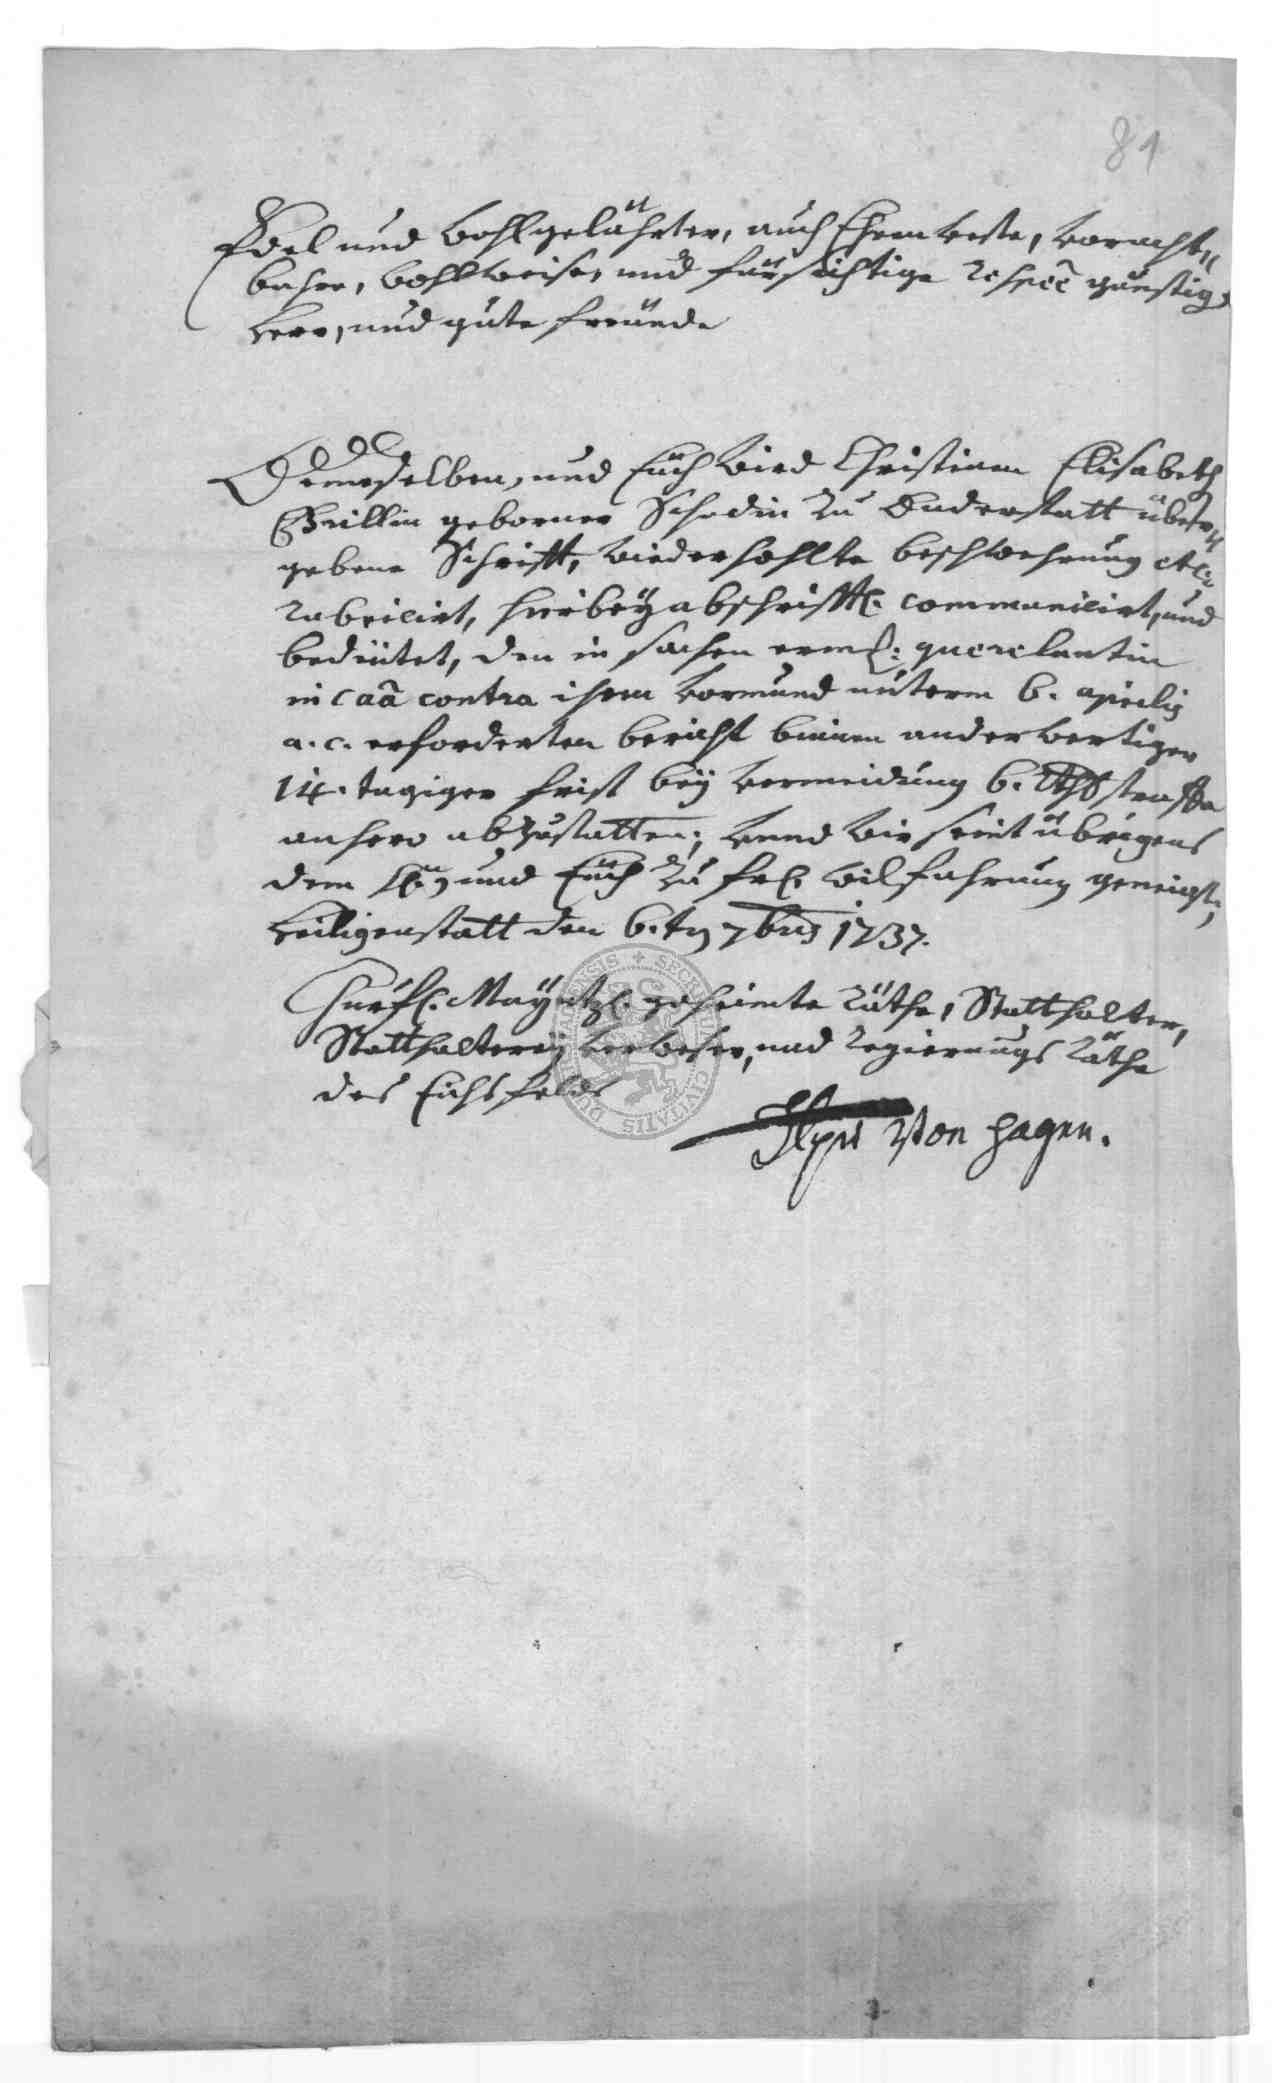 81
Edel und wohlgelährter, auch Ehrnveste, voracht-
bahre, wohlweise, und fürsichtige respec günstige
herr, und gute freünde
Demeselben, und Euch wird Christinen Elisabeth
geborner Schedin zu Duderstatt überr
gebene Schrifft, wiederhohlte beschwehrung etc:
rubricirt, hierbeÿ abschrifftl. communicirt, und
bedeütet, den in sachen erml: querelantin
in caa contra ihren vormund unterm 6. aprilis
a. c. erforderten bericht binnen anderwertiger
14. tagiger frist beÿ vermeidung 6. Rthlr straffe
anhero abzustatten; unnd wir seint übrigens
dem und Euch zu frl. wilfahrung geneigt;
heiligenstatt den 6.ten 7bris 1737.
Churfl. Maÿntzl. geheimte räthe, Statthalter,
Statthaltereÿ verweser, und regierungs räthe
des Eichsfelds
von Hagen.
SECRETUM CIVITATIS DUDERSTADENSIS